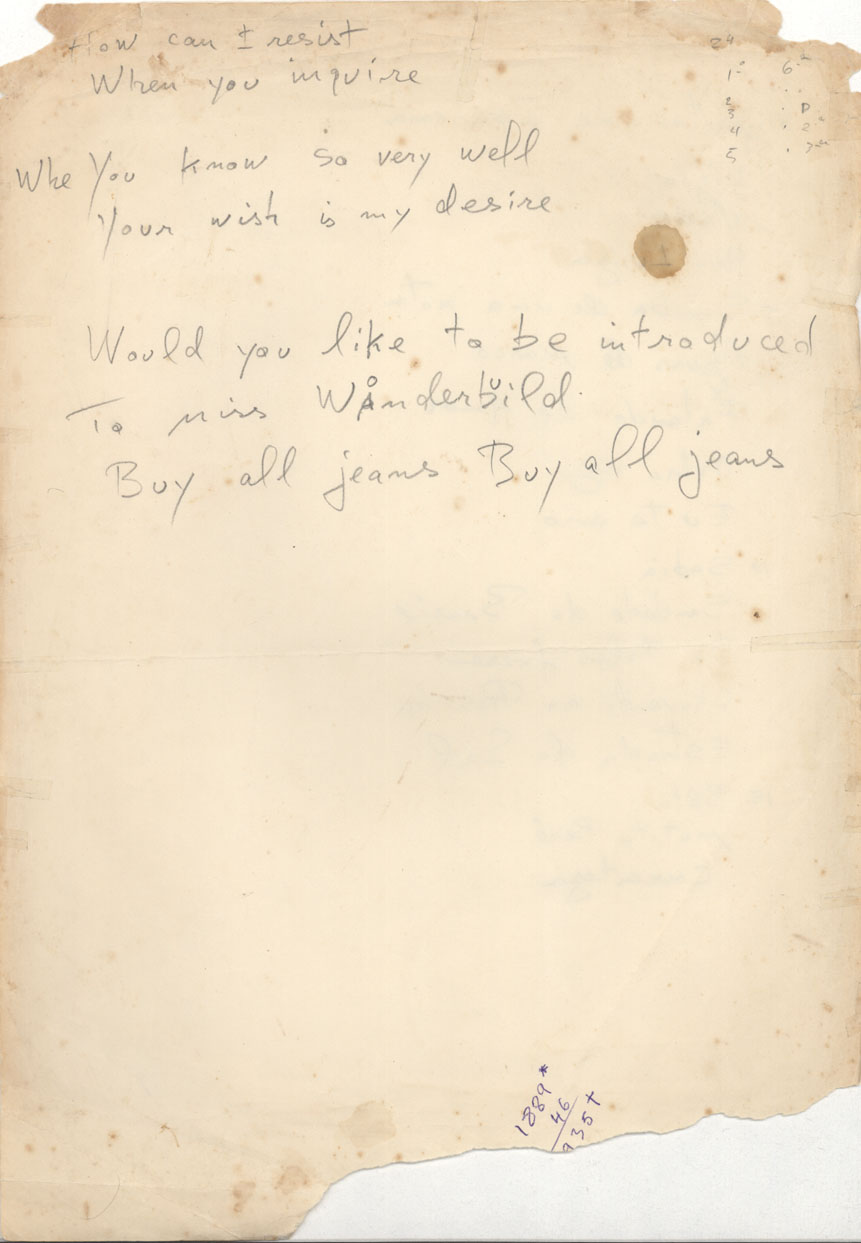 How can I resist
When you inquire
Whe You know so very well
Your wish is my desire
Would you like to be introduced
To miss Wånderbuild
Buy all jeans Buy all jeans
24
1ª 6ª
2
3 D
4 2ª
5 7ª
1889*
46
935+